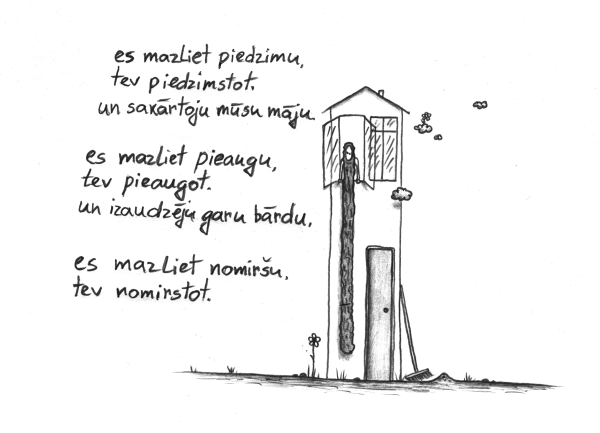 es mazliet piedzimu,
tev piedzimstot.
un sakārtoju mūsu māju.
es mazliet pieaugu,
tev pieaugot.
un izaudzēju garu bārdu.
es mazliet nomiršu,
tev nomirstot.